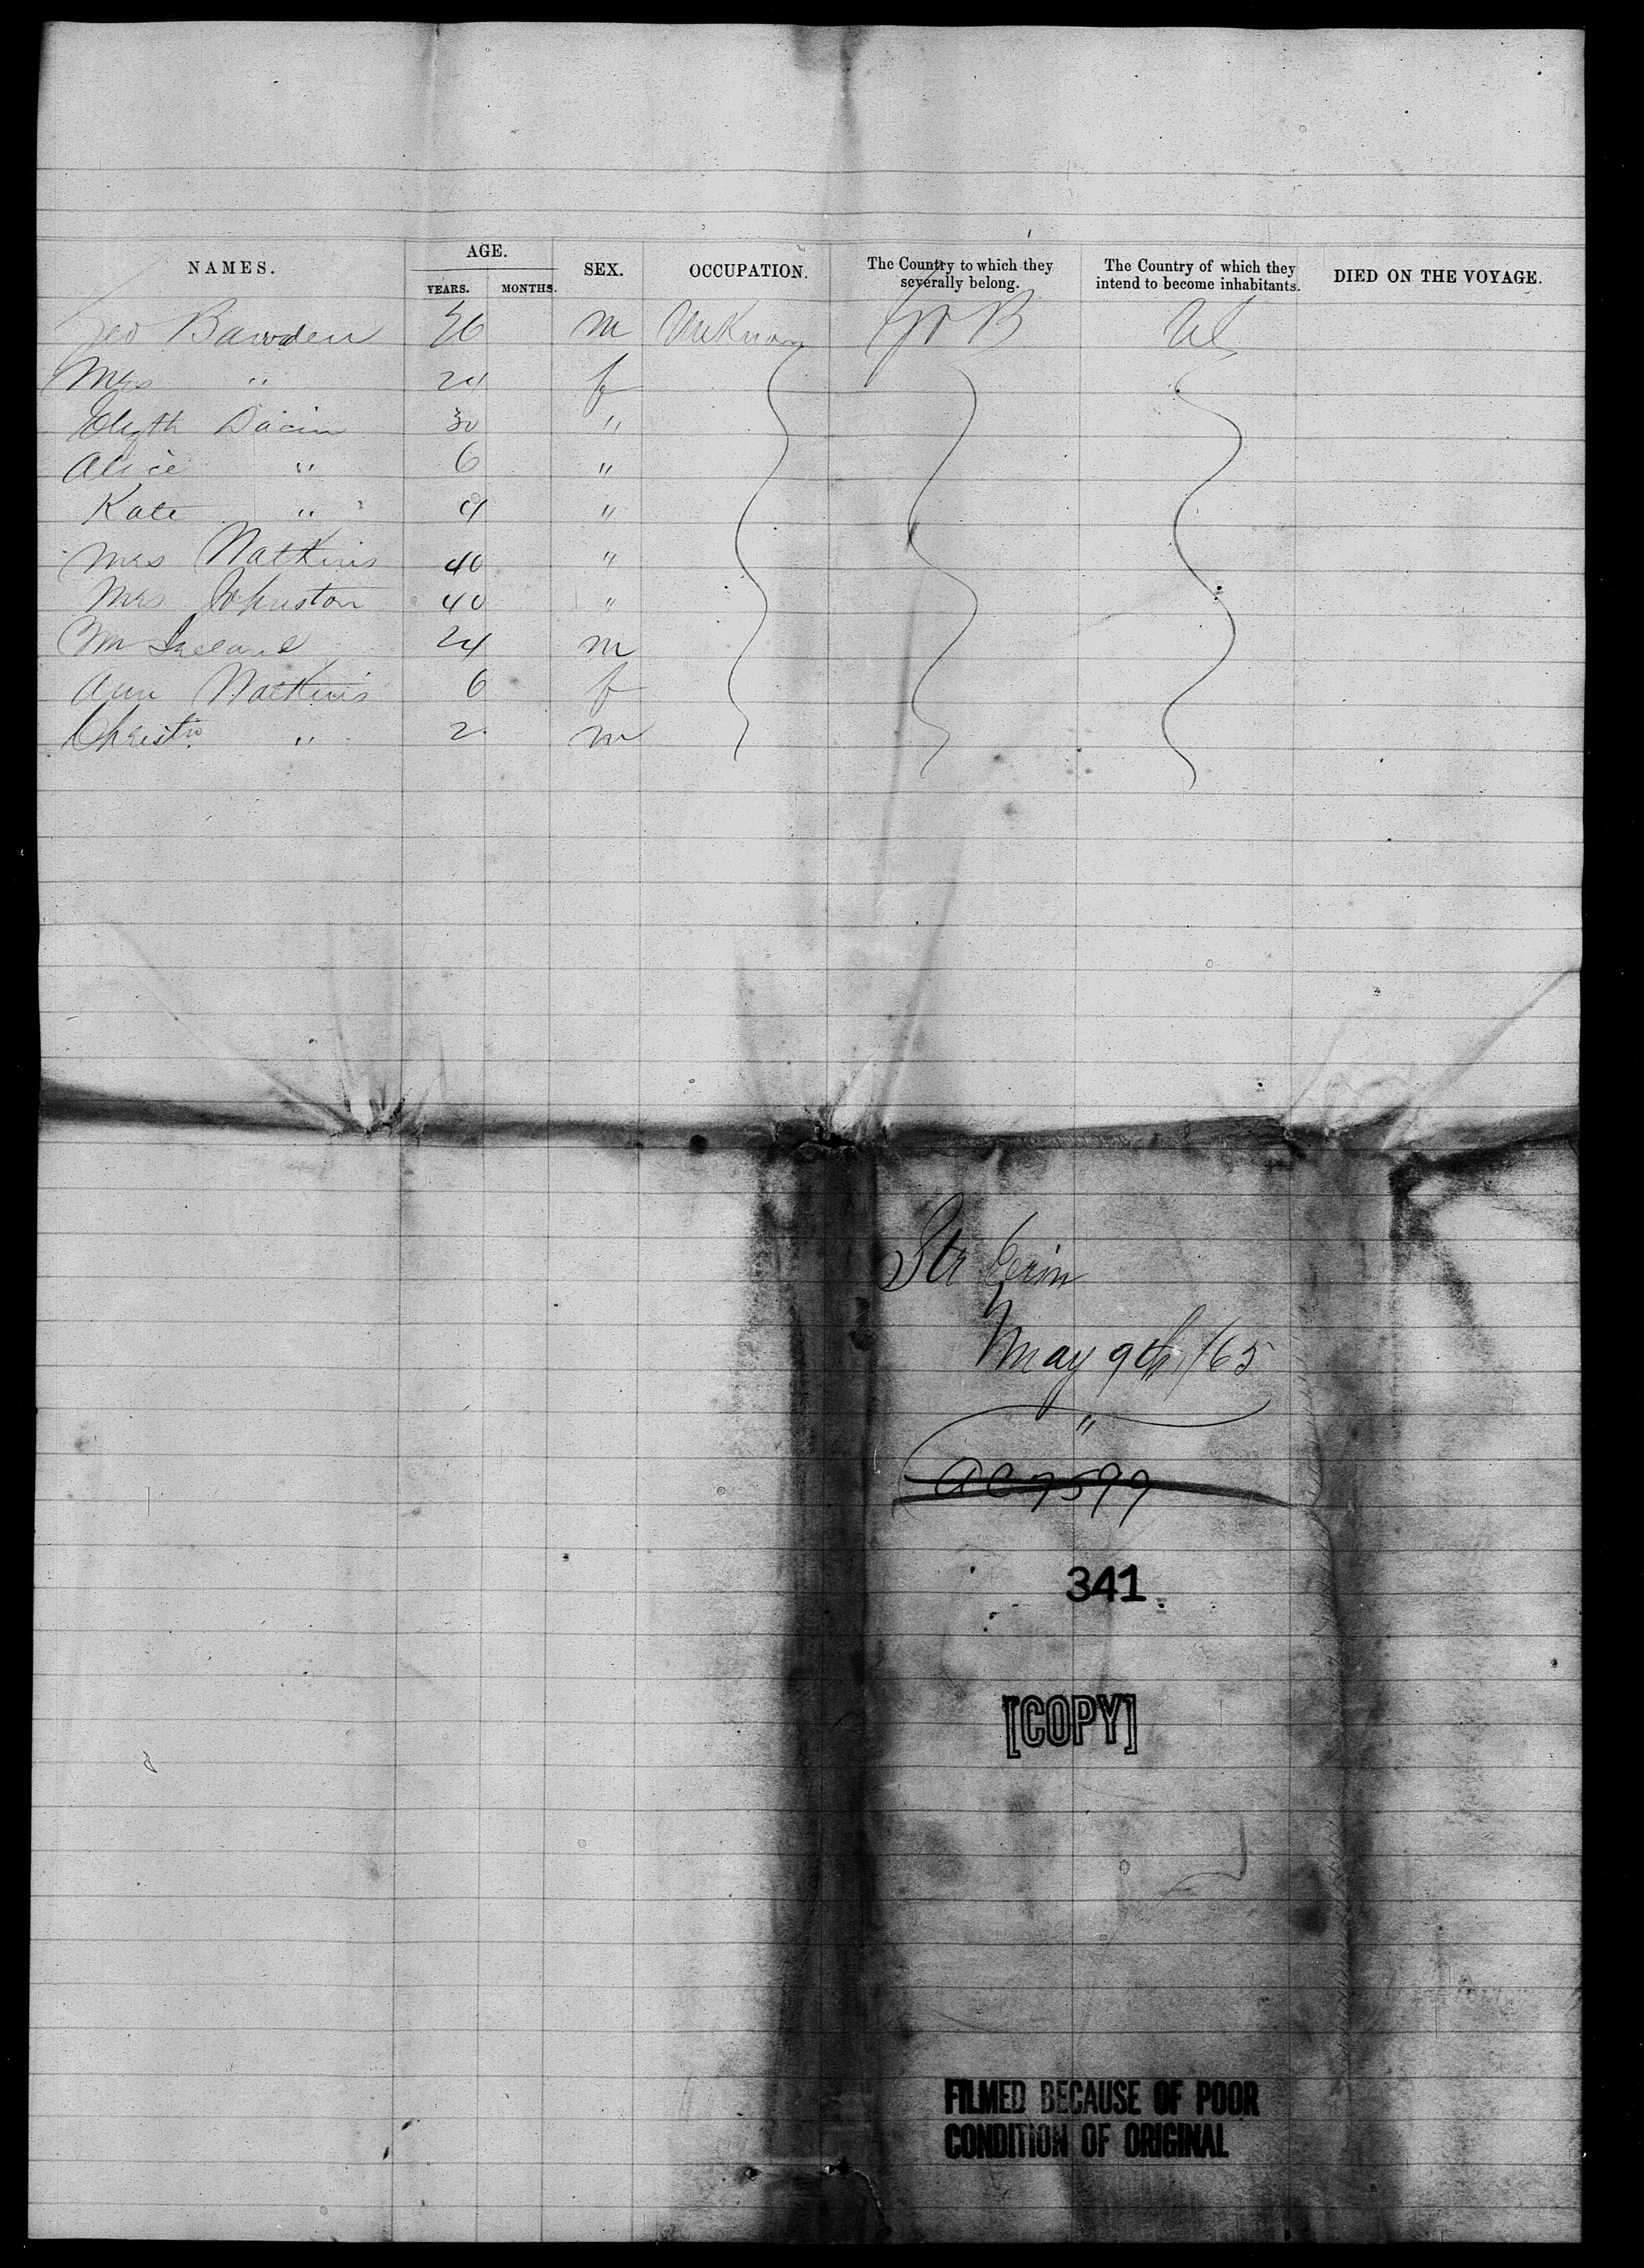 NAMES. AGE. SEX. OCCUPATION. The Country to which they severally belong. The Country of which they intend to become inhabitants. DIED ON THE VOYAGE.
YEARS. MONTHS.
Geo Bawden 26 m Unknown Gr B US
Mrs " 24 f
Elizth 30 "
Alice " 6 "
Kate " 4 "
Mrs Watkins 40 "
Mrs Johnston 40 "
Wm Ireland 24 m
Ann Watkins 6 f
Christr " 2 m
Str Erin
May 9th /65
"
341
[COPY]
FILMED BECAUSE OF POOR
CONDITION OF ORIGINAL